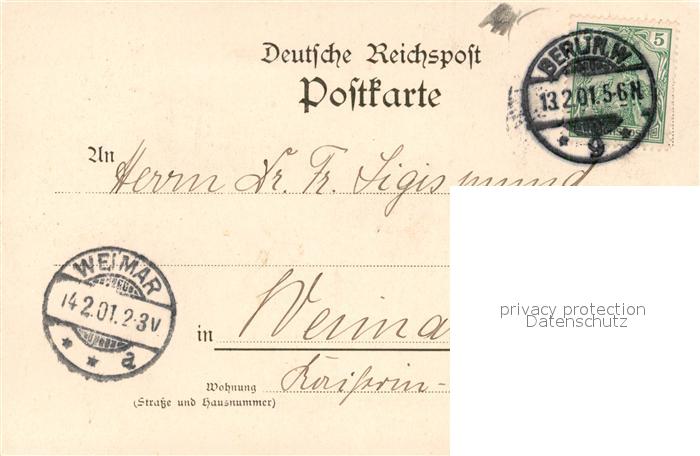 Deutsche Reichspost
Postkarte
5
BERLIN.W
13.2.01.5-6N
* 9 *
An
Herrn Dr. Fr. Sigismund
WEIMAR
14.2.01.2-3V
* * a
privacy protection
Datenschutz
in Weima
Wohnung
(Straße und Hausnummer)
Kaiserin-